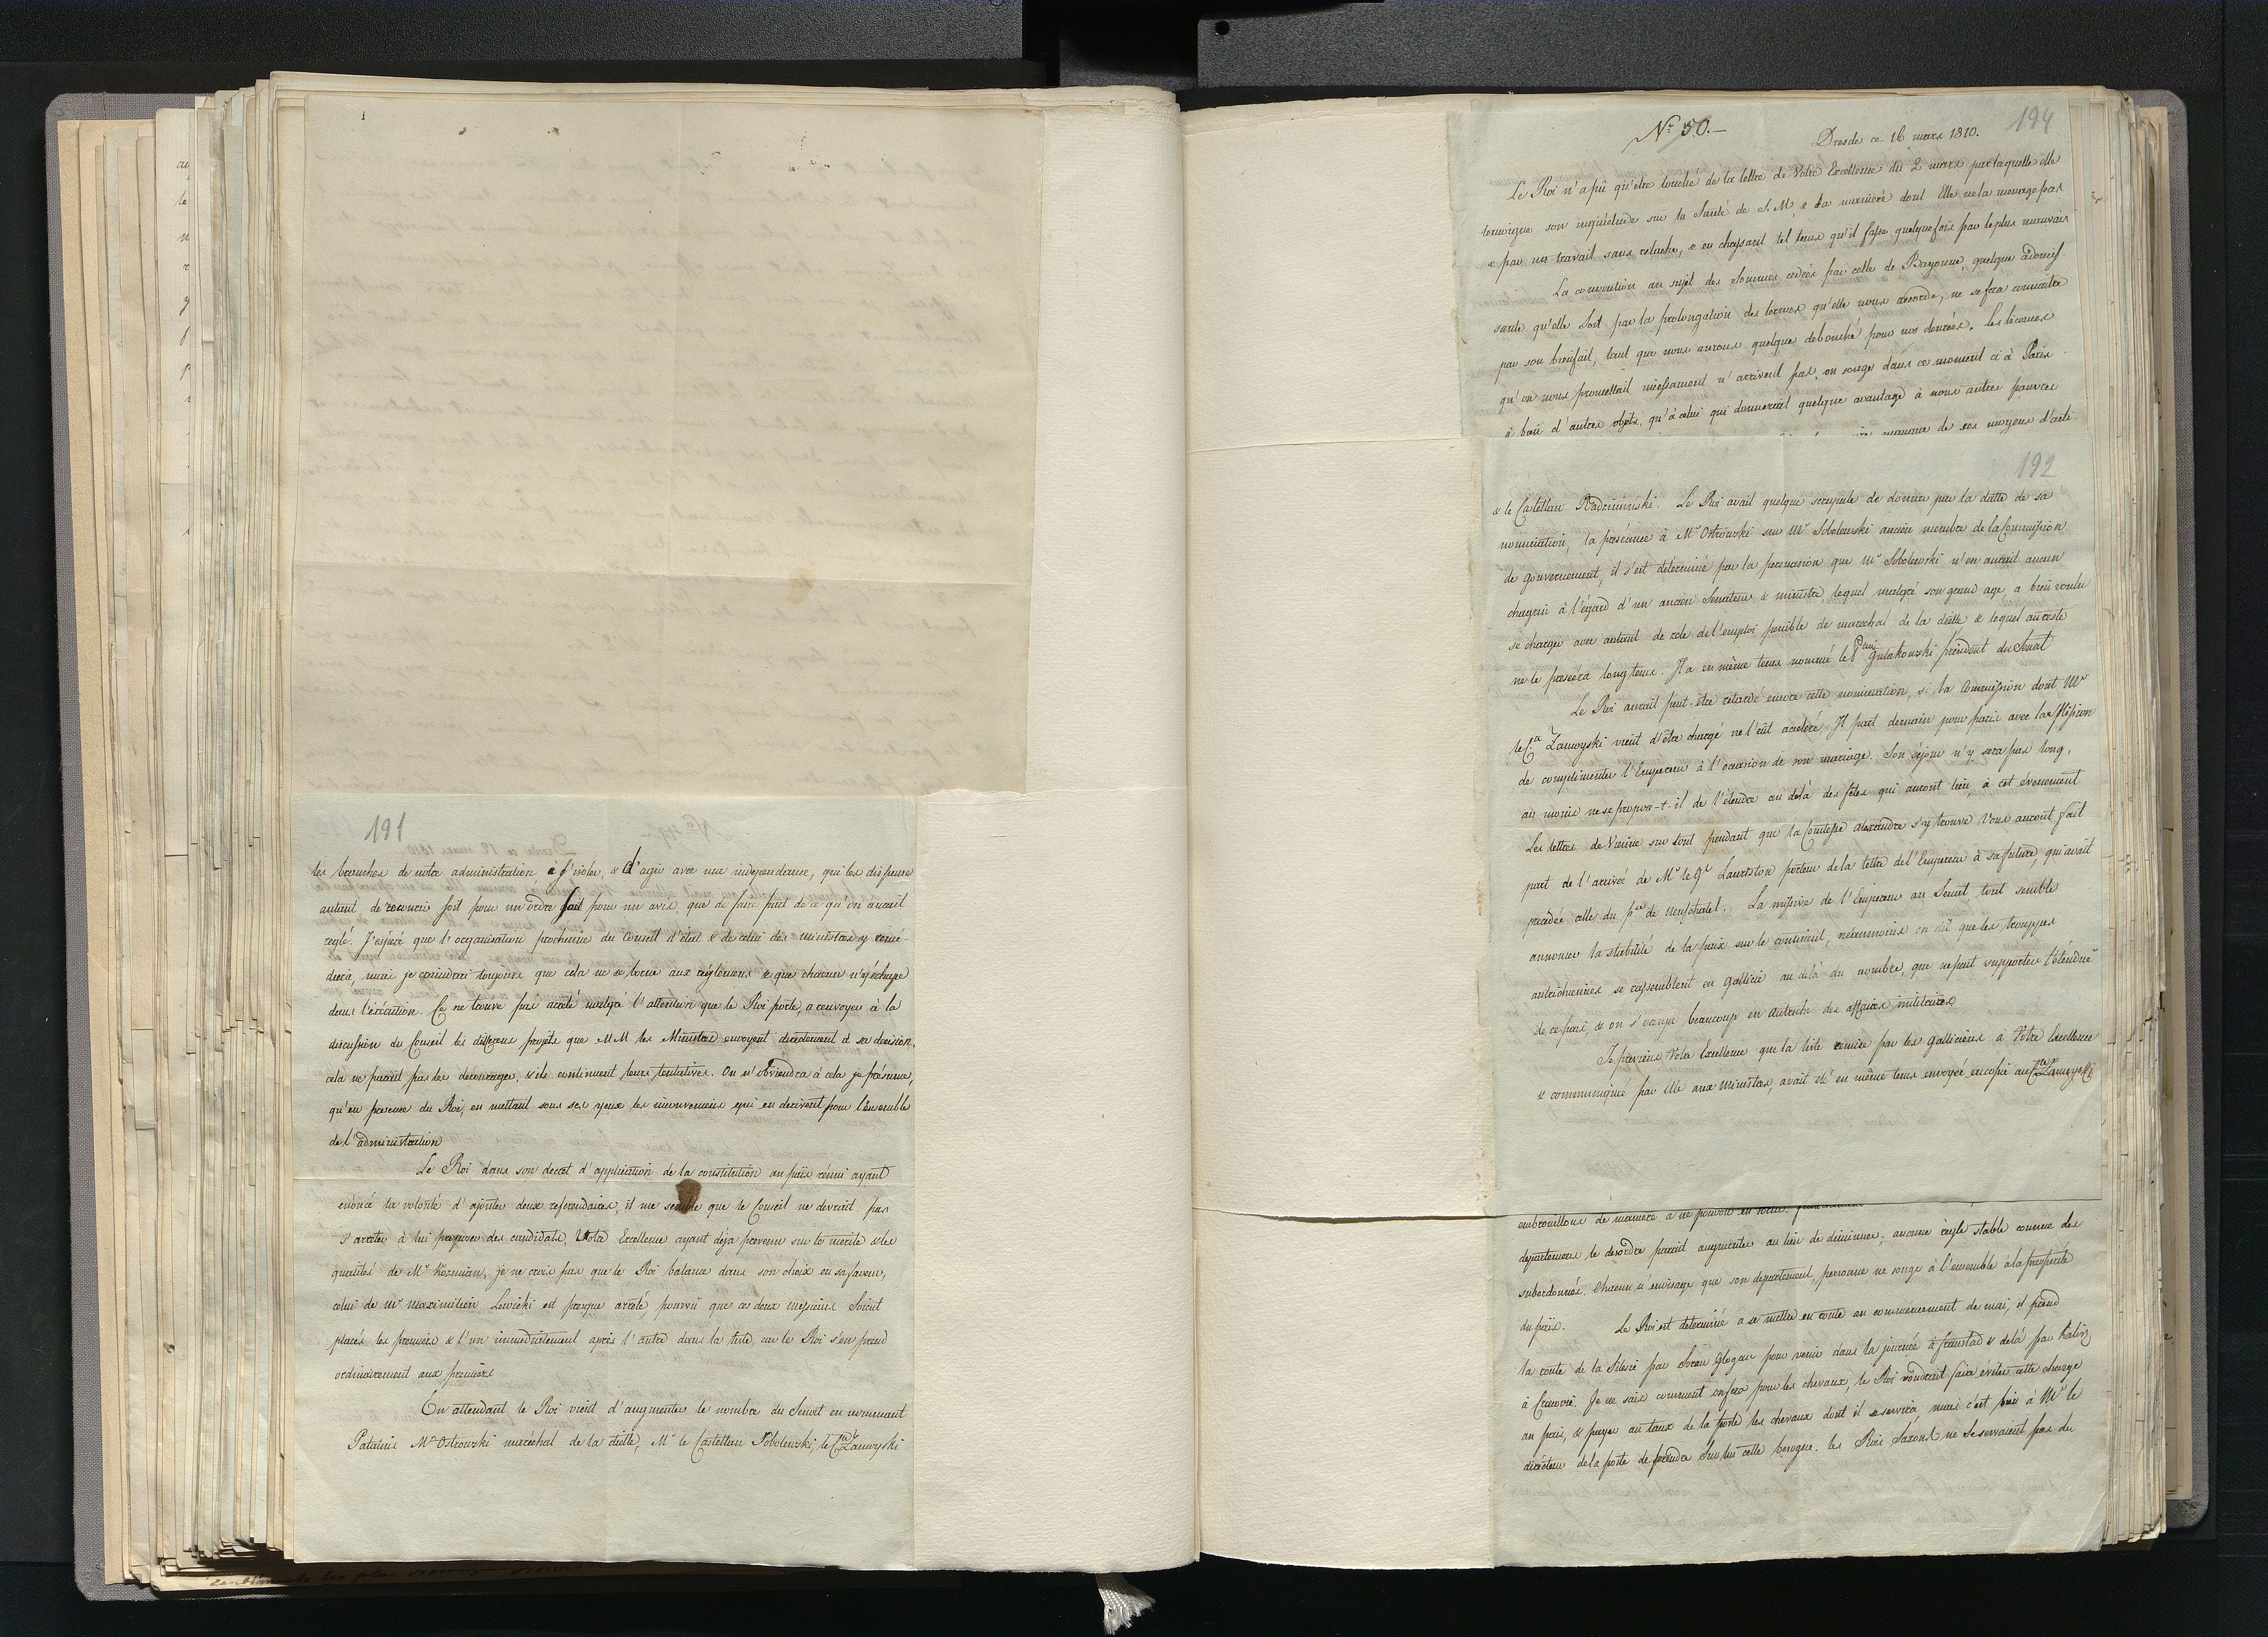 191
les branches de notre administration, à s'isoler, & d'agir avec une independance, qui les dispense
autant, de recourir soit pour un ordre soit pour un avis, que de faire part de ce qu'on aurait
reglé. J'espère que l'organisation prochaine du Conseil d'état & de celui des ministres y remé-
diera, mais je craindrai toujours que cela ne se borne aux réglémens & que chacun n'y échape
dans l'éxécution. Ce ne trouve pas arreté malgré l'attention que le Roi porte, a renvoyer à la
discussion du Conseil les differens projets que MM les Ministres envoyent directement à sa decision,
cela ne parait pas les decourager, & ils continuent leurs tentatives. On n'obviendra à cela je présume,
qu'en presence du Roi, en mettant sous ses yeux les inconveniens qui en derivent pour l'ensemble
de l'administration
Le Roi dans son decret d'application de la constitution au païs réuni ayant
enoncé la volonté d'ajouter deux referendaires, il me semble que le Conseil ne devrait pas
s'arreter à lui proposer des candidats, Votre Excellence ayant déja prevenu sur le merite & les
qualités de Mr Kozmian, je ne crois pas que le Roi balance dans son choix en sa faveur,
celui de Mr Maximilien Lewicki est presque arreté, pourvû que ces deux messieurs soient
placés les premiers & l'un immediatement après l'autre dans la liste car le Roi s'en prend
ordinairement aux premiers
En attendant le Roi vient d'augmenter le nombre du Senat en nommant
Palatins Mr Ostrowski maréchal de la diète, Mr le Castellan Sobolewski, le Cte Zamoyski
No 50.—
194
Dresde ce 16 mars 1810.
Le Roi n'a pû qu'etre touché de la lettre de Votre Excellence du 2 mars par laquelle elle
temoigne son inquiétude sur la Santé de S. M, & la manière dont Elle ne la menage pas
& par un travail sans relache, & en chassant tel tems qu'il fasse quelquefois par le plus mauvais
La convention au sujet des sommes cedées par celle de Bayonne, quelque adoucis
sante qu'elle soit par la prolongation des termes qu'elle nous accorde, ne se fera connaitre
par son bienfait, tant que nous aurons quelque debouché pour nos denrées. les licences
qu'on nous promettait incessament n'arrivent pas, on songe dans ce moment ci à Paris
à bien d'autres objets, qu'à celui qui donnerait quelque avantage à nous autres pauvres
manque de ses moyens d'acti-
192
& le Castellan Radziminski. Le Roi avait quelque scrupule de donner par la datte de sa
nomination, la preséance à Mr Ostrowski sur Mr Sobolewski ancien membre de la Commission
de gouvernement, il s'est déterminé par la persuasion que Mr Sobolewski n'en aurait aucun
chagrin à l'égard d'un ancien Senateur & ministre, lequel malgré son grand age, a bien voulu
se charger avec autant de zele de l'emploi penible de marechal de la diète & lequel au reste
ne le preséera longtems. Il a en même tems nommé le Cte Gutakowski président du Senat
Le Roi aurait peut-être retardé encore cette nomination, si la Commission dont Mr
le Cte Zamoyski vient d'être chargé ne l'eût acceleré. Il part demain pour Paris avec la Mission
de complimenter l'Empereur à l'occasion de son mariage. Son séjour n'y sera pas long,
au moins ne se propose-t-il de l'étendre au delà des fêtes qui auront lieu, à cet évenement
Les lettres de Vienne sur tout pendant que la Comtesse Alexandre s'y trouve Vous auront fait
part de l'arrivée de Mr le Gl Lauriston porteur de la lettre de l'Empereur à sa future, qui avait
precedée celle du pce de Neufchatel. La missive de l'Empereur au Senat, tout semble
annoncer la stabilité de la paix sur le continent, néanmoins on dit que les trouppes
autrichiennes se rassemblent en Gallicie au delà du nombre, que ne peut supporter l'étendue
de ce pais, & on s'occupe beaucoup en Autriche des affaires militaires
Je previens Votre Excellence que la liste remise par les Galliciens à Votre Excellence
& communiquée par Elle aux Ministres, avait été en même tems envoyée en copie au Cte Zamoyski
embrouillons de manière a ne pouvoir en sortir.
departemens le desordre parait augmenter au lieu de diminuer; aucune règle stable connue des
subordonnés. Chacun n'envisage que son departement, personne ne songe à l'ensemble à la prosperité
du païs.
Le Roi est determiné a se mettre en route au commencement de mai, il prend
la route de la Silesie par Sorau Glogau pour venir dans la journée à fraustad & de là par Kalisz
à Cracovie. Je ne sais comment on fera pour les chevaux, le Roi voudrait faire éviter cette charge
au pais, & payer au taux de la poste les chevaux dont il se servira mais c'est bien à Mr le
directeur de la poste de prendre sur lui cette besogne. les Rois Saxons ne se servaient pas du